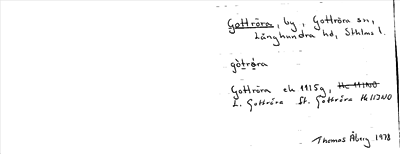 Gottröra, by, Gottröra sn,
Långhundra hd, Sthlms l.
gòtrǿra
Gottröra ek 1125g, H6 11INO
L. Gottröra St. Gottröra H6 11JNO
Thomas Åberg 1978